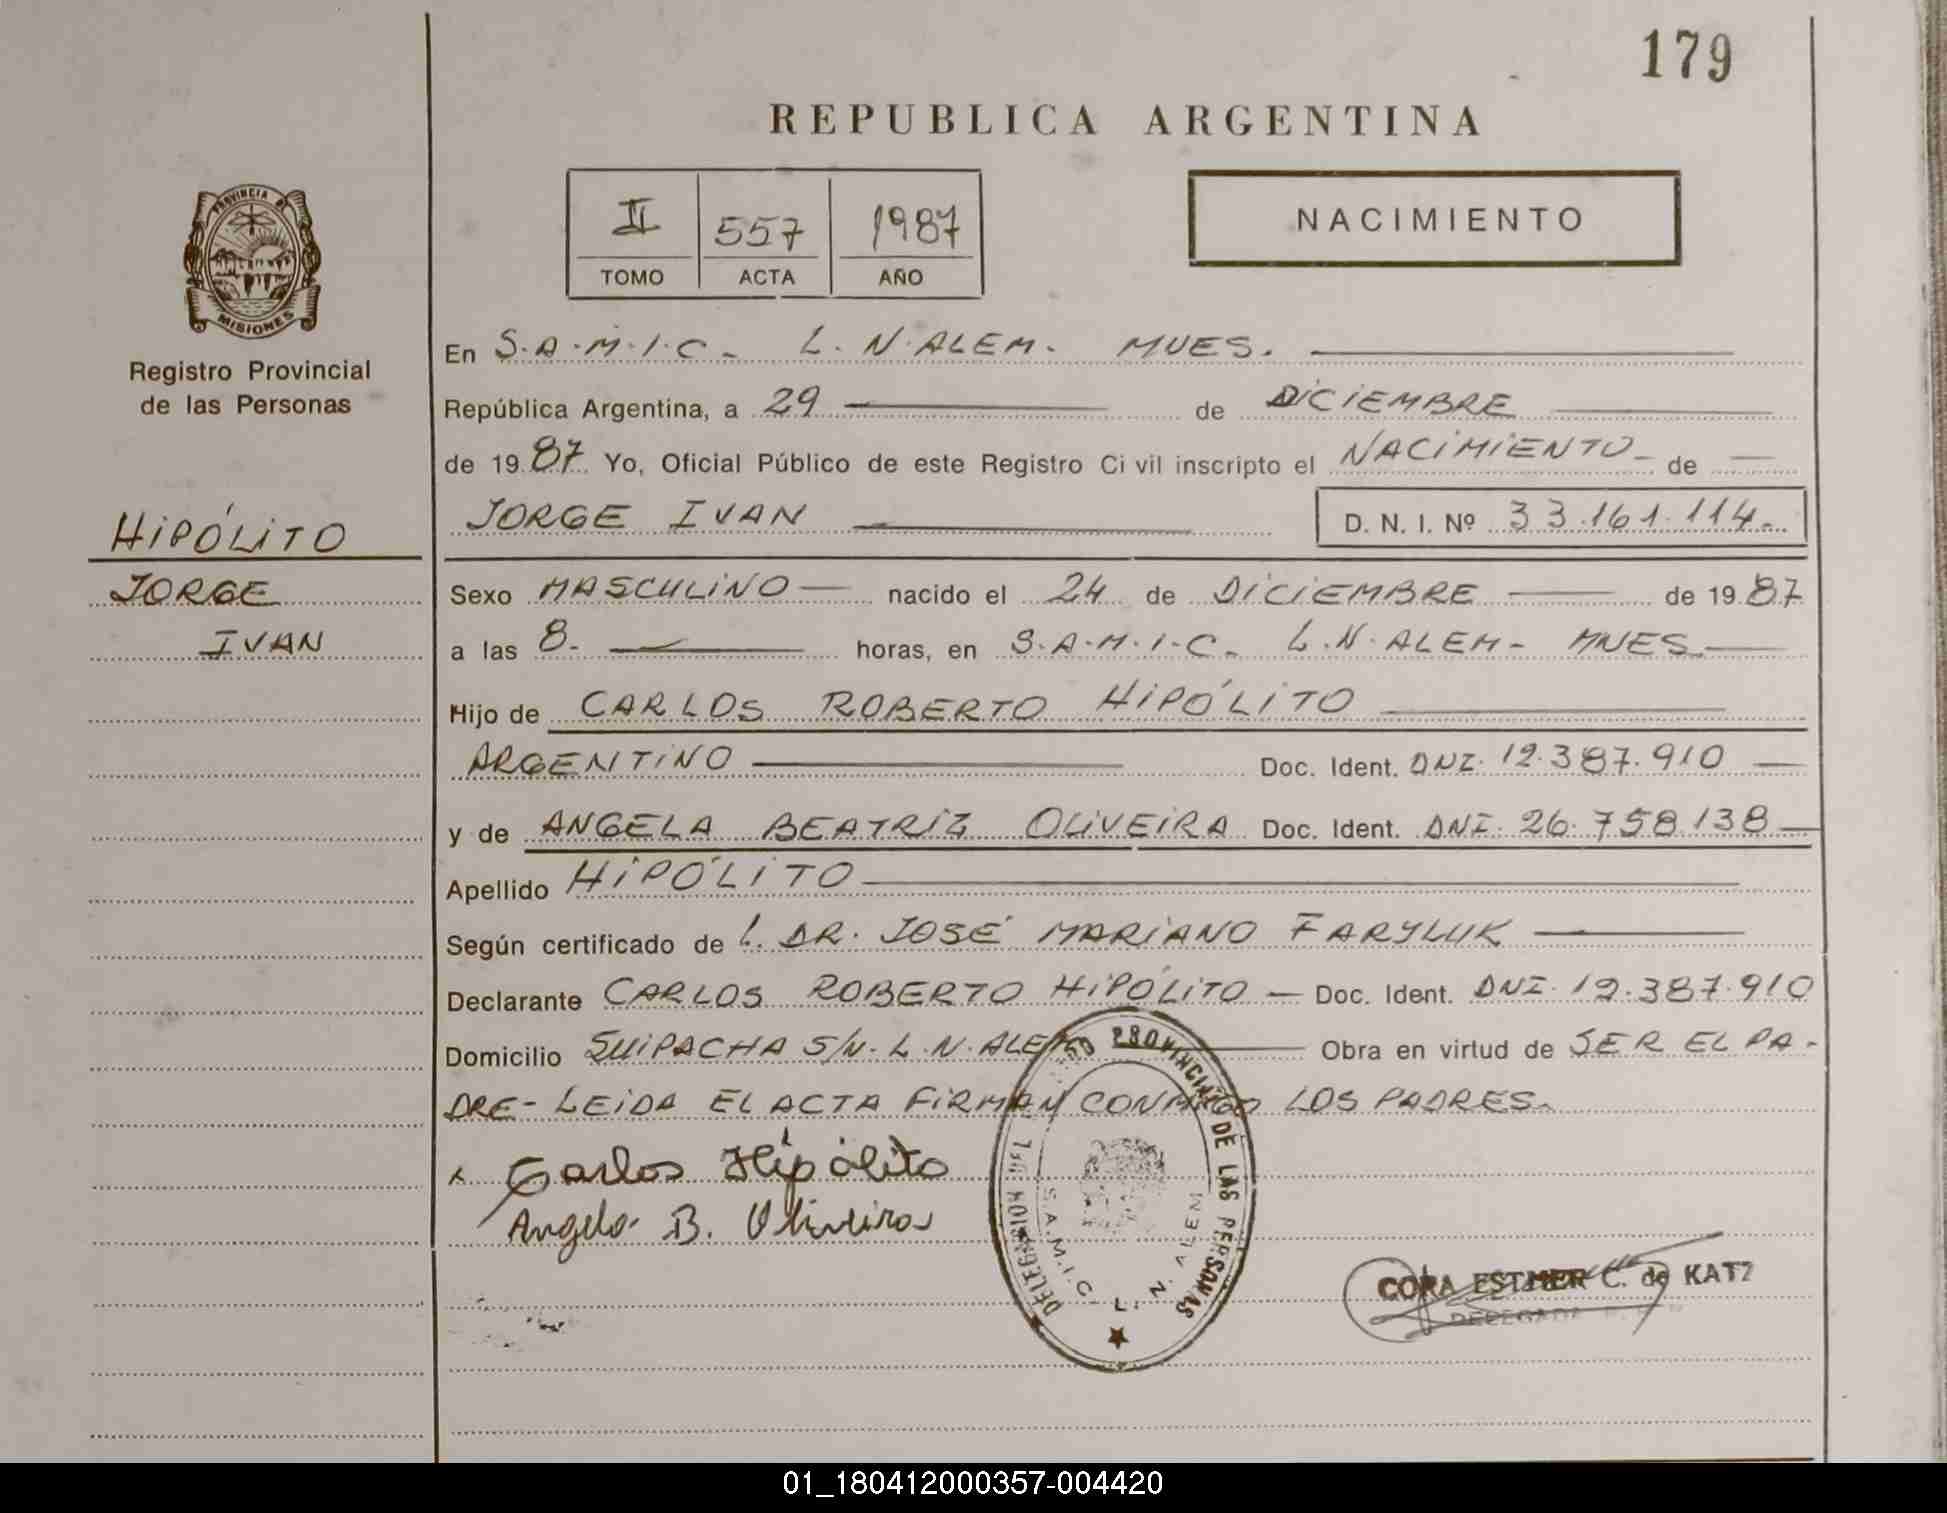 179
REPUBLICA ARGENTINA
II 557 1987
TOMO ACTA AÑO
NACIMIENTO
PROVINCIA DE
MISIONES
Registro Provincial
de las Personas
HIPÓLITO
JORGE
IVAN
En S.A.M.I.C. L. N. ALEM. MNES.
República Argentina, a 29 de DICIEMBRE
de 19 87 Yo, Oficial Público de este Registro Civil inscripto el NACIMIENTO de
JORGE IVAN D. N. I. Nº 33.161.114.
Sexo MASCULINO nacido el 24 de DICIEMBRE de 19 87
a las 8. horas, en S.A.M.I.C. L.N. ALEM - MNES.
Hijo de CARLOS ROBERTO HIPÓLITO
ARGENTINO Doc. Ident. DNI. 12.387.910
y de ANGELA BEATRIZ OLIVEIRA Doc. Ident. DNI. 26.758.138
Apellido HIPÓLITO
Según certificado de DR. JOSÉ MARIANO FARYLUK
Declarante CARLOS ROBERTO HIPÓLITO - Doc. Ident. DNI. 12.387.910
Domicilio SUIPACHA S/N. L.N. ALEM Obra en virtud de SER EL PA-
DRE- LEIDA EL ACTA FIRMAN CONMIGO LOS PADRES.
x Carlos Hipólito
Angela B. Oliveira
PROVINCIAL DE LAS PERSONAS
DELEGACION
S.A.M.I.C. L. N. ALEM
CORA ESTHER C. de KATZ
DELEGADA
01_180412000357-004420